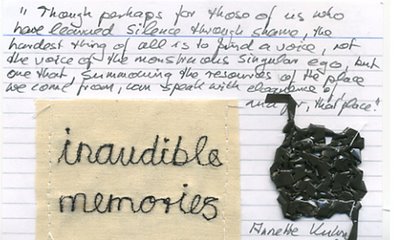 "Though perhaps for those of us who
have learned silence through shame, the
hardest thing of all is to find a voice, not
the voice of the monstrous singular ego, but
one that, summoning the resources of the place
we come from, can speak with eloquence of
and for, that place."
inaudible
memories
Annette Kuhn